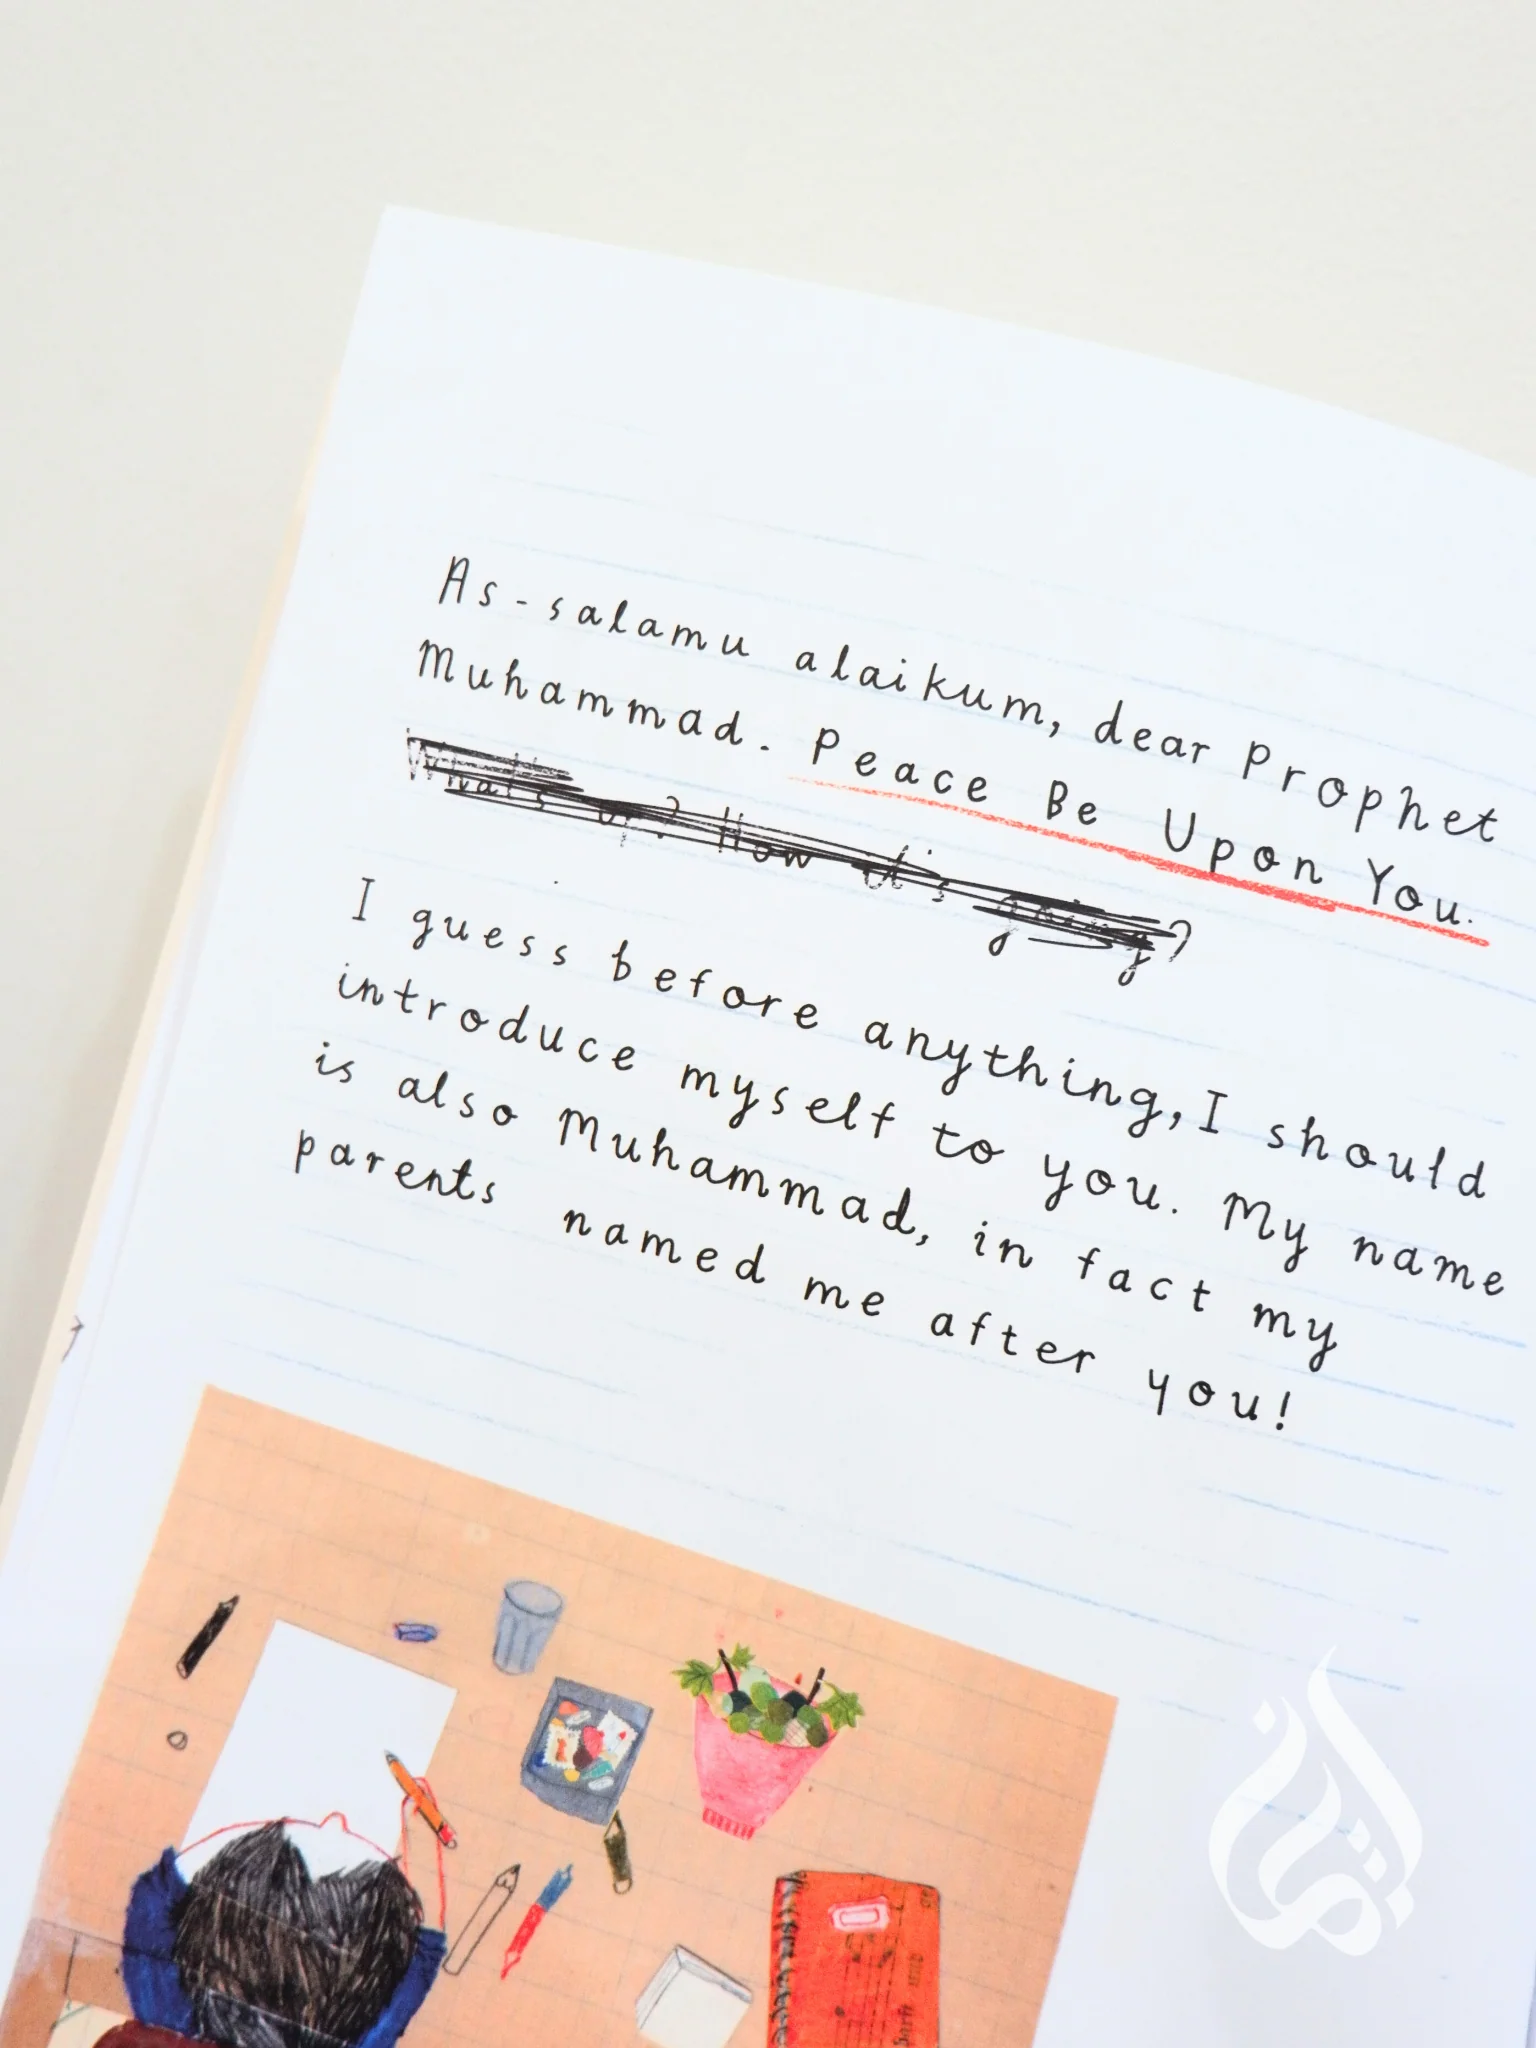 As-salamu alaikum, dear Prophet
Muhammad. Peace Be Upon You.
What's up? How it's going?
I guess before anything, I should
introduce myself to you. My name
is also Muhammad, in fact my
parents named me after you!
إيمان